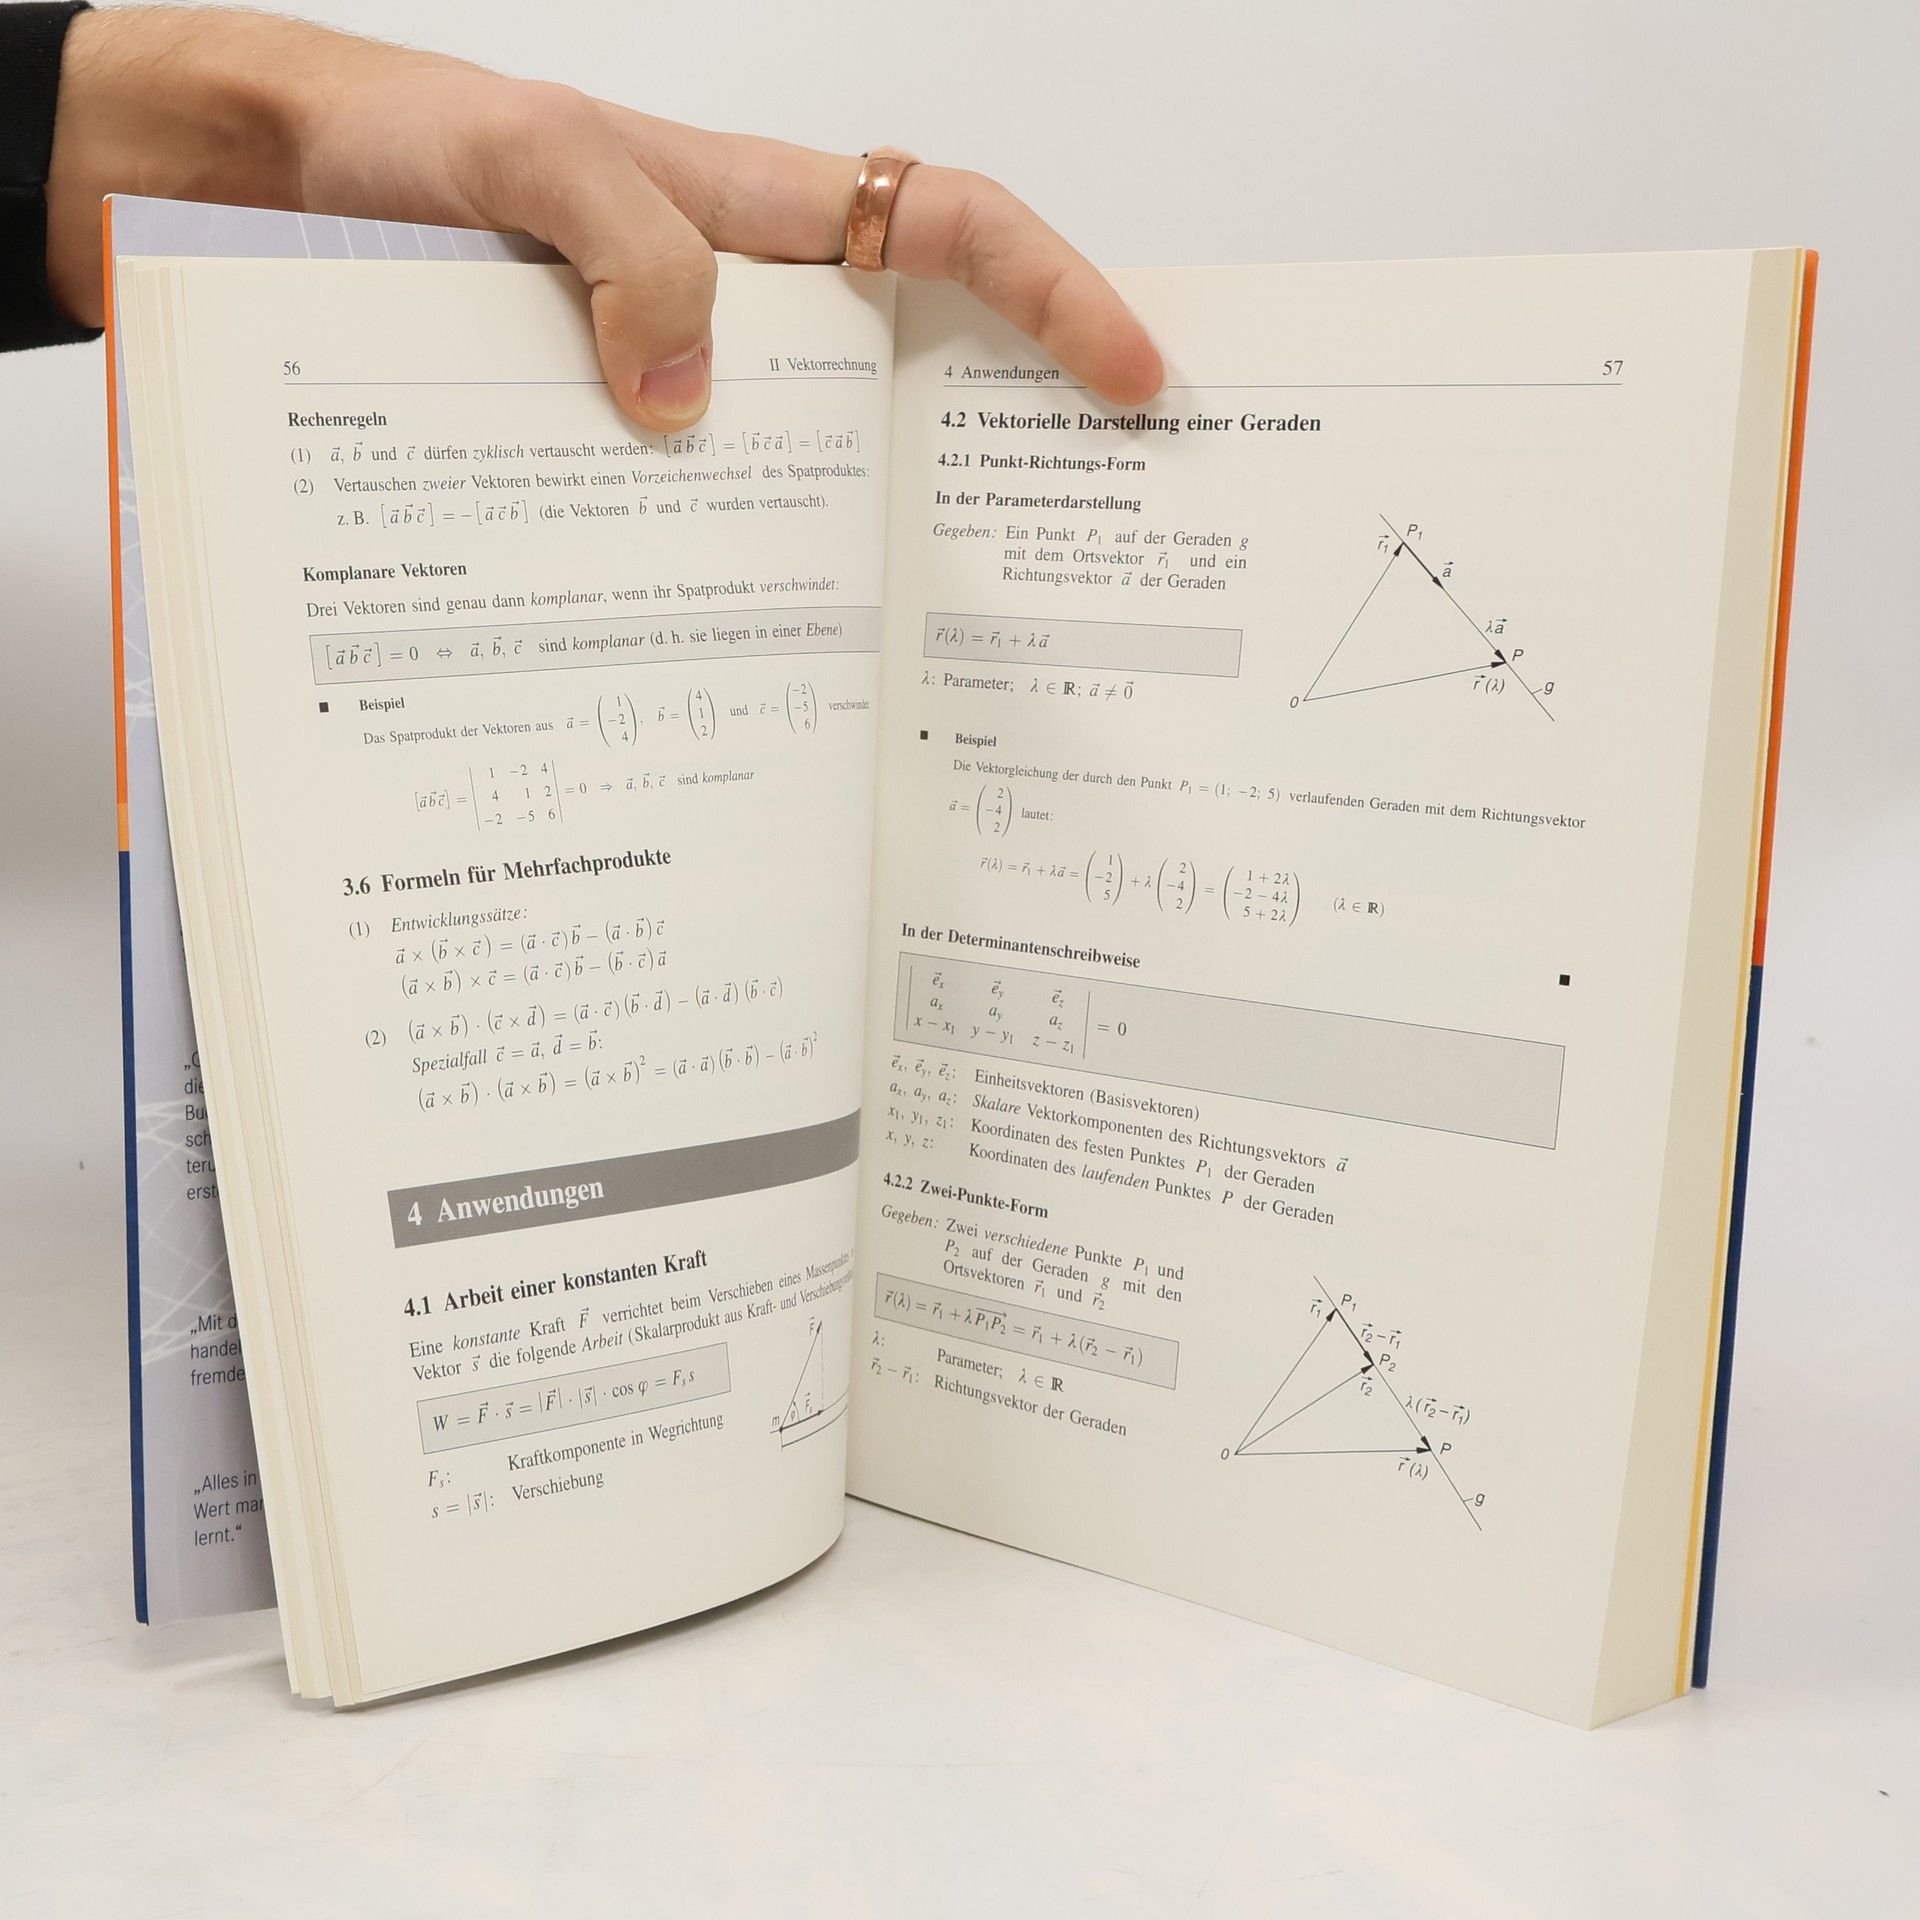 56
II Vektorrechnung
Rechenregeln
(1) a⃗, b⃗ und c⃗ dürfen zyklisch vertauscht werden: [a⃗ b⃗ c⃗] = [b⃗ c⃗ a⃗] = [c⃗ a⃗ b⃗]
(2) Vertauschen zweier Vektoren bewirkt einen Vorzeichenwechsel des Spatproduktes:
z. B. [a⃗ b⃗ c⃗] = −[a⃗ c⃗ b⃗] (die Vektoren b⃗ und c⃗ wurden vertauscht).
Komplanare Vektoren
Drei Vektoren sind genau dann komplanar, wenn ihr Spatprodukt verschwindet:
[a⃗ b⃗ c⃗] = 0 ⇔ a⃗, b⃗, c⃗ sind komplanar (d. h. sie liegen in einer Ebene)
■ Beispiel
Das Spatprodukt der Vektoren aus a⃗ = (1 −2 4), b⃗ = (4 1 2) und c⃗ = (−2 −5 6) verschwindet
[a⃗ b⃗ c⃗] = | 1 −2 4
4 1 2
−2 −5 6 | = 0 ⇒ a⃗, b⃗, c⃗ sind komplanar
3.6 Formeln für Mehrfachprodukte
(1) Entwicklungssätze:
a⃗ × (b⃗ × c⃗) = (a⃗ · c⃗) b⃗ − (a⃗ · b⃗) c⃗
(a⃗ × b⃗) × c⃗ = (a⃗ · c⃗) b⃗ − (b⃗ · c⃗) a⃗
(2) (a⃗ × b⃗) · (c⃗ × d⃗) = (a⃗ · c⃗) (b⃗ · d⃗) − (a⃗ · d⃗) (b⃗ · c⃗)
Spezialfall c⃗ = a⃗, d⃗ = b⃗:
(a⃗ × b⃗) · (a⃗ × b⃗) = (a⃗ × b⃗)² = (a⃗ · a⃗) (b⃗ · b⃗) − (a⃗ · b⃗)²
4 Anwendungen
4.1 Arbeit einer konstanten Kraft
Eine konstante Kraft F⃗ verrichtet beim Verschieben eines Massenpunktes
Vektor s⃗ die folgende Arbeit (Skalarprodukt aus Kraft- und
W = F⃗ · s⃗ = |F⃗| · |s⃗| · cos φ = Fₛ s
Fₛ: Kraftkomponente in Wegrichtung
s = |s⃗|: Verschiebung
F⃗
m
φ
F⃗ₛ
die
Bu
sch
teru
erst
„Mit d
handel
fremde
„Alles in
Wert mar
lernt.“
4 Anwendungen
57
4.2 Vektorielle Darstellung einer Geraden
4.2.1 Punkt-Richtungs-Form
In der Parameterdarstellung
Gegeben: Ein Punkt P₁ auf der Geraden g
mit dem Ortsvektor r⃗₁ und ein
Richtungsvektor a⃗ der Geraden
r⃗(λ) = r⃗₁ + λ a⃗
λ: Parameter; λ ∈ ℝ; a⃗ ≠ 0⃗
P₁
r⃗₁
a⃗
λa⃗
P
r⃗(λ)
g
O
■ Beispiel
Die Vektorgleichung der durch den Punkt P₁ = (1; −2; 5) verlaufenden Geraden mit dem Richtungsvektor
a⃗ = (2 −4 2) lautet:
r⃗(λ) = r⃗₁ + λ a⃗ = (1 −2 5) + λ (2 −4 2) = (1 + 2λ −2 − 4λ 5 + 2λ) (λ ∈ ℝ)
■
In der Determinantenschreibweise
| e⃗ₓ e⃗ᵧ e⃗_z
aₓ aᵧ a_z
x − x₁ y − y₁ z − z₁ | = 0
e⃗ₓ, e⃗ᵧ, e⃗_z: Einheitsvektoren (Basisvektoren)
aₓ, aᵧ, a_z: Skalare Vektorkomponenten des Richtungsvektors a⃗
x₁, y₁, z₁: Koordinaten des festen Punktes P₁ der Geraden
x, y, z: Koordinaten des laufenden Punktes P der Geraden
4.2.2 Zwei-Punkte-Form
Gegeben: Zwei verschiedene Punkte P₁ und
P₂ auf der Geraden g mit den
Ortsvektoren r⃗₁ und r⃗₂
r⃗(λ) = r⃗₁ + λ P₁P₂⃗ = r⃗₁ + λ (r⃗₂ − r⃗₁)
λ: Parameter; λ ∈ ℝ
r⃗₂ − r⃗₁: Richtungsvektor der Geraden
P₁
r⃗₁
r⃗₂−r⃗₁
P₂
r⃗₂
λ(r⃗₂−r⃗₁)
P
r⃗(λ)
O
g